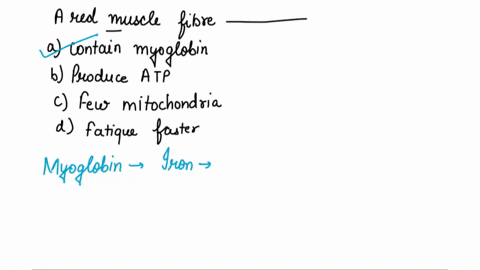 A red muscle fibre ________
a) Contain myoglobin
b) Produce ATP
c) Few mitochondria
d) Fatique faster
Myoglobin → Iron →